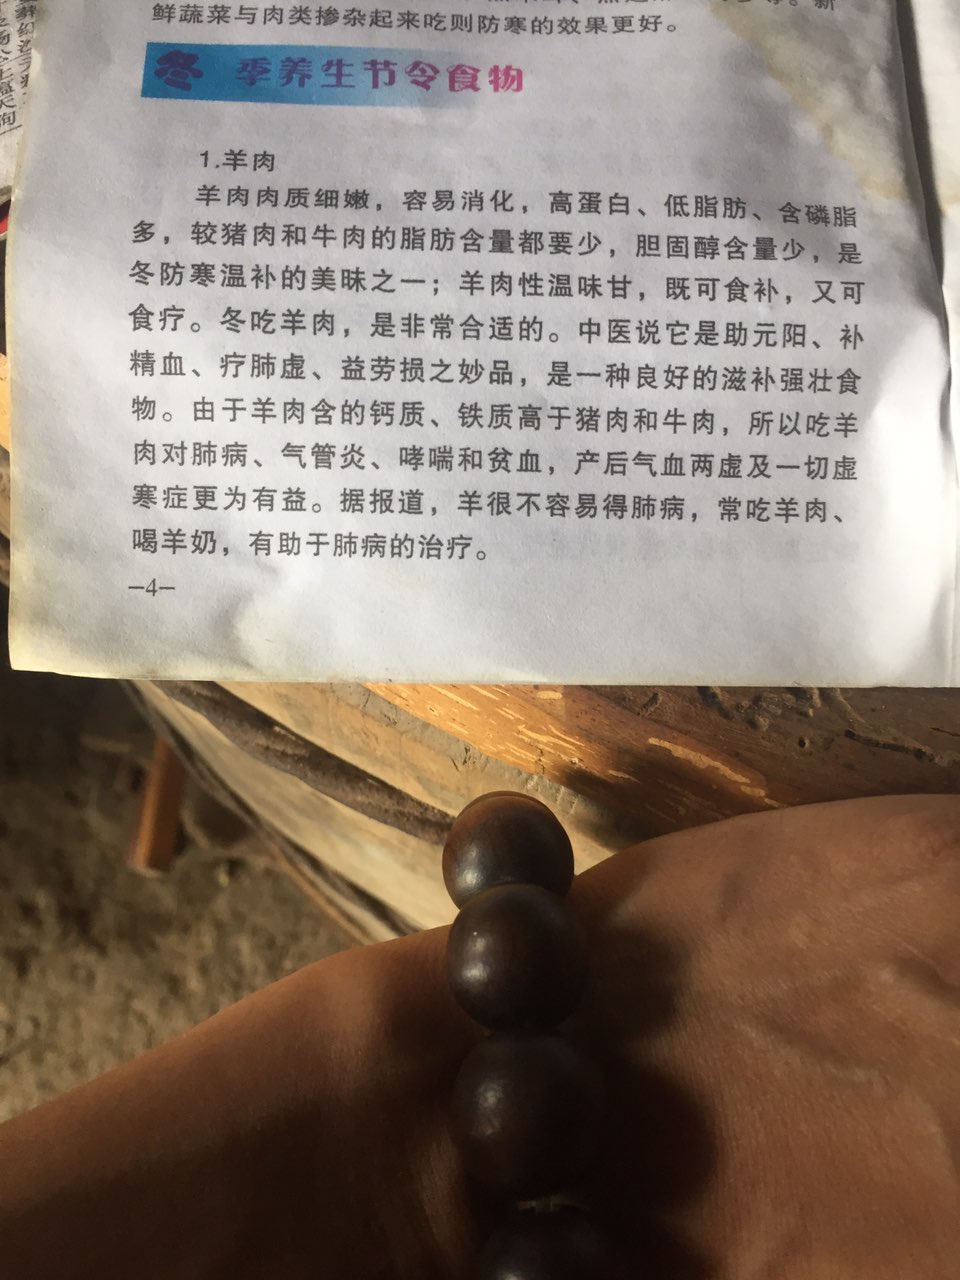 鲜蔬菜与肉类掺杂起来吃则防寒的效果更好。
冬季养生节令食物
1.羊肉
羊肉肉质细嫩，容易消化，高蛋白、低脂肪、含磷脂
多，较猪肉和牛肉的脂肪含量都要少，胆固醇含量少，是
冬防寒温补的美味之一；羊肉性温味甘，既可食补，又可
食疗。冬吃羊肉，是非常合适的。中医说它是助元阳、补
精血、疗肺虚、益劳损之妙品，是一种良好的滋补强壮食
物。由于羊肉含的钙质、铁质高于猪肉和牛肉，所以吃羊
肉对肺病、气管炎、哮喘和贫血，产后气血两虚及一切虚
寒症更为有益。据报道，羊很不容易得肺病，常吃羊肉、
喝羊奶，有助于肺病的治疗。
—4—